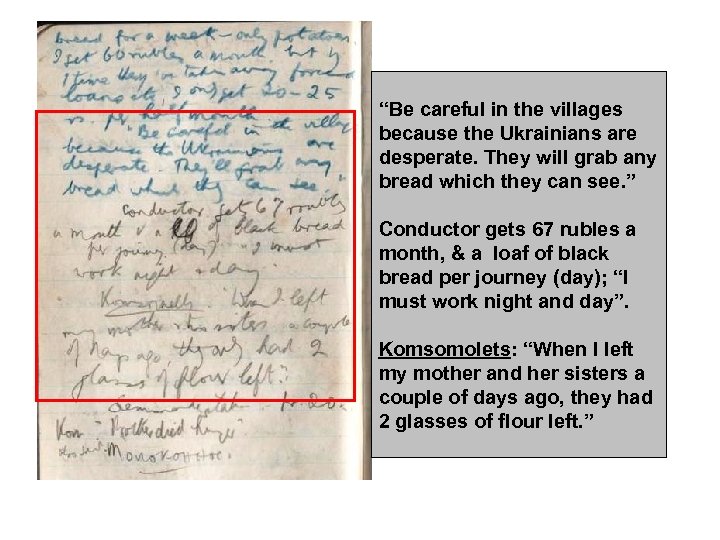 bread for a week – only potatoes.
I get 60 roubles a month, but by
time they've taken away forced
loans etc, I only get 20-25
rs. per half month.
"Be careful in the villages
because the Ukrainians are
desperate. They'll grab any
bread which they can see."
Conductor gets 67 roubles
a month & a lf of black bread
per journey (day) "I must
work night & day.
Komsomolets: When I left
my mother & two sisters a couple
of days ago, they only had 2
glasses of flour left."
Kom "Brother died hunger"
“Be careful in the villages
because the Ukrainians are
desperate. They will grab any
bread which they can see.”
Conductor gets 67 rubles a
month, & a loaf of black
bread per journey (day); “I
must work night and day”.
Komsomolets: “When I left
my mother and her sisters a
couple of days ago, they had
2 glasses of flour left.”